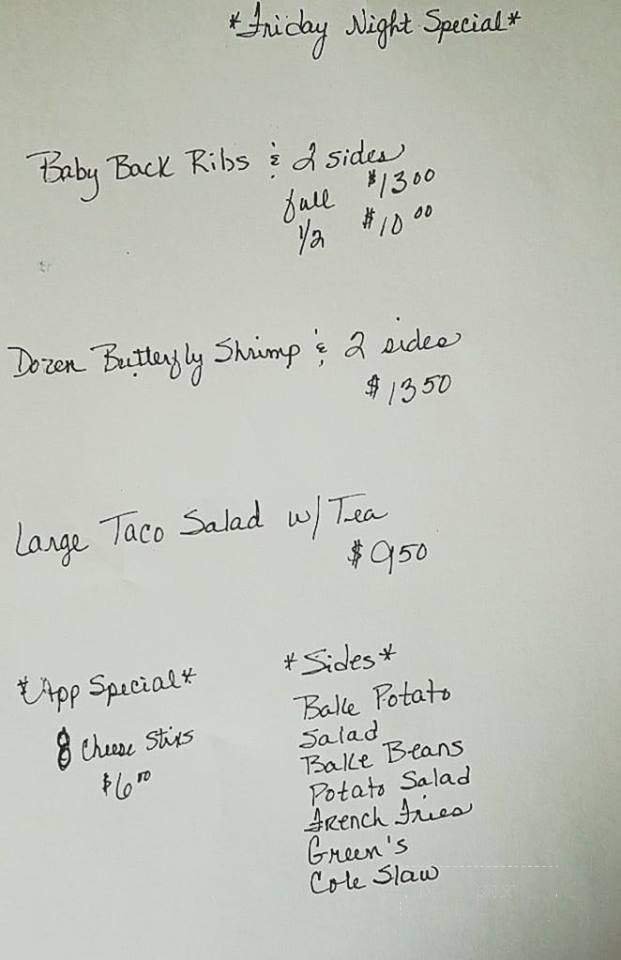 *Friday Night Special*
Baby Back Ribs & 2 sides
full $13 00
1/2 $10 00
Dozen Butterfly Shrimp & 2 sides
$13 50
Large Taco Salad w/ Tea
$9 50
*App Special*
8 Cheese Stixs
$6 00
*Sides*
Bake Potato
Salad
Bake Beans
Potato Salad
French Fries
Green's
Cole Slaw